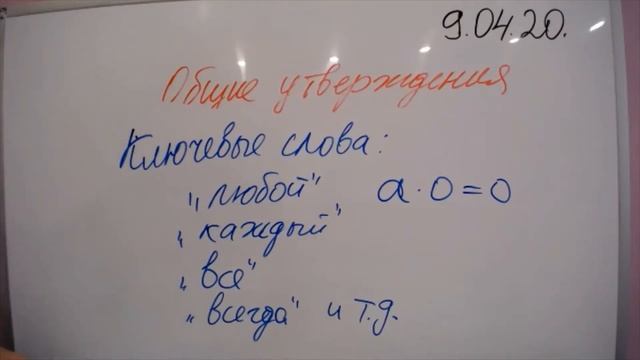 9.04.20.
Общие утверждения
Ключевые слова:
„любой" a · 0 = 0
„каждый"
„все"
„всегда" и т.д.